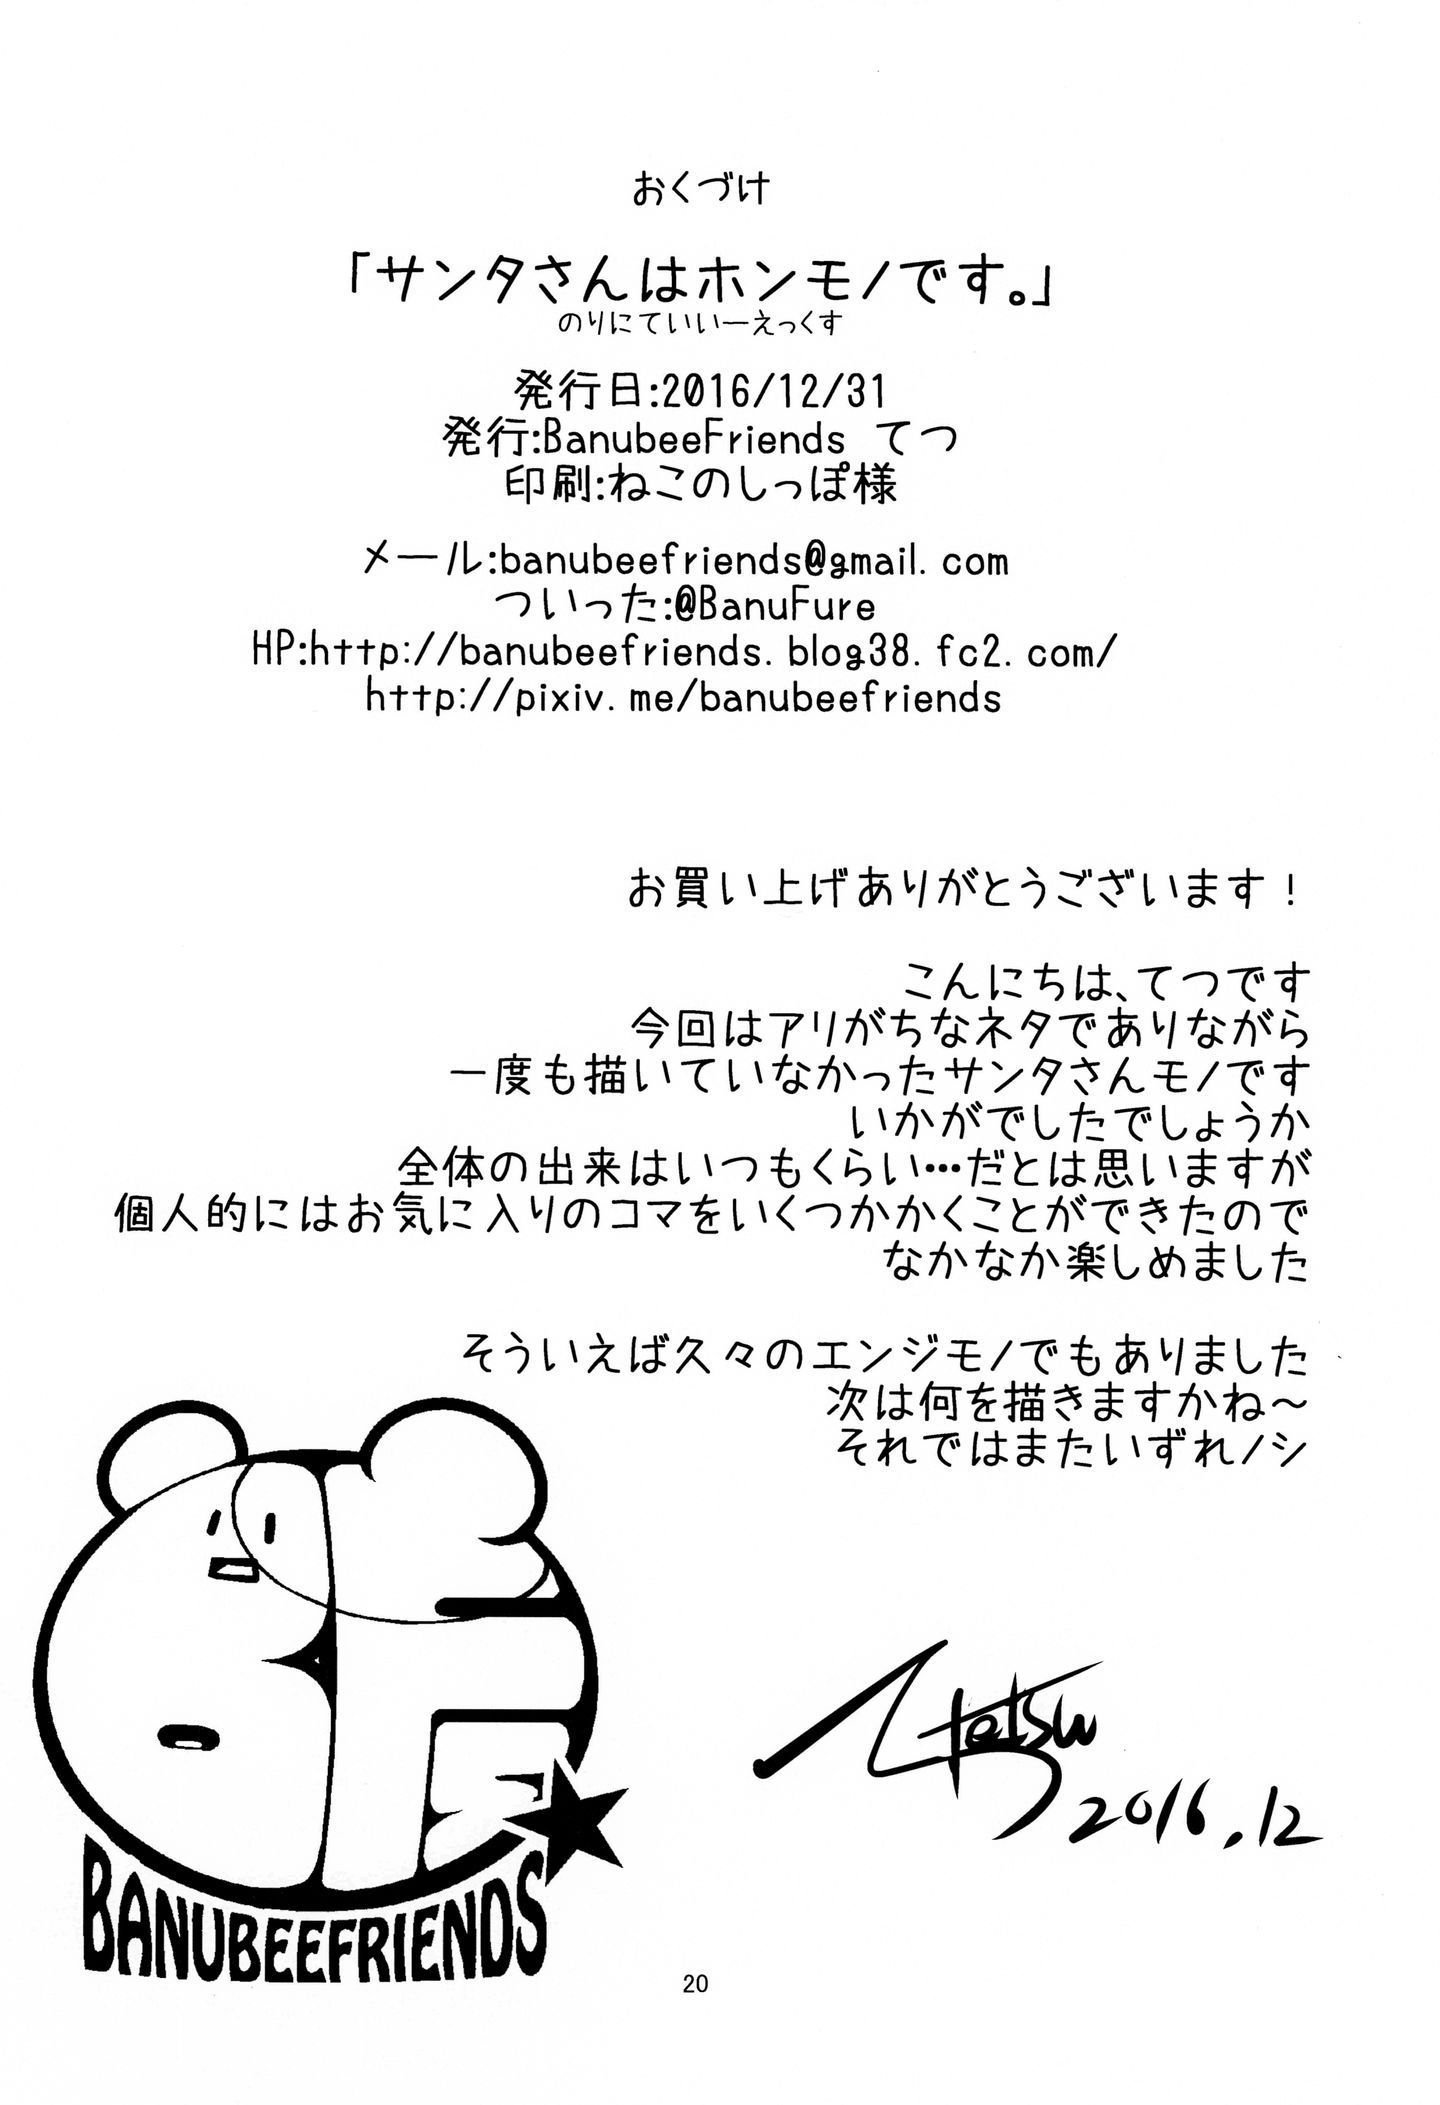 おくづけ
「サンタさんはホンモノです。」
のりにていいーえっくす
発行日:2016/12/31
発行:BanubeeFriends てつ
印刷:ねこのしっぽ様
メール:banubeefriends@gmail.com
ついった:@BanuFure
HP:http://banubeefriends.blog38.fc2.com/
http://pixiv.me/banubeefriends
お買い上げありがとうございます！
こんにちは、てつです
今回はアリがちなネタでありながら
一度も描いていなかったサンタさんモノです
いかがでしたでしょうか
全体の出来はいつもくらい…だとは思いますが
個人的にはお気に入りのコマをいくつかかくことができたので
なかなか楽しめました
そういえば久々のエンジモノでもありました
次は何を描きますかね～
それではまたいずれノシ
Tetsu
2016.12
BANUBEEFRIENDS
20